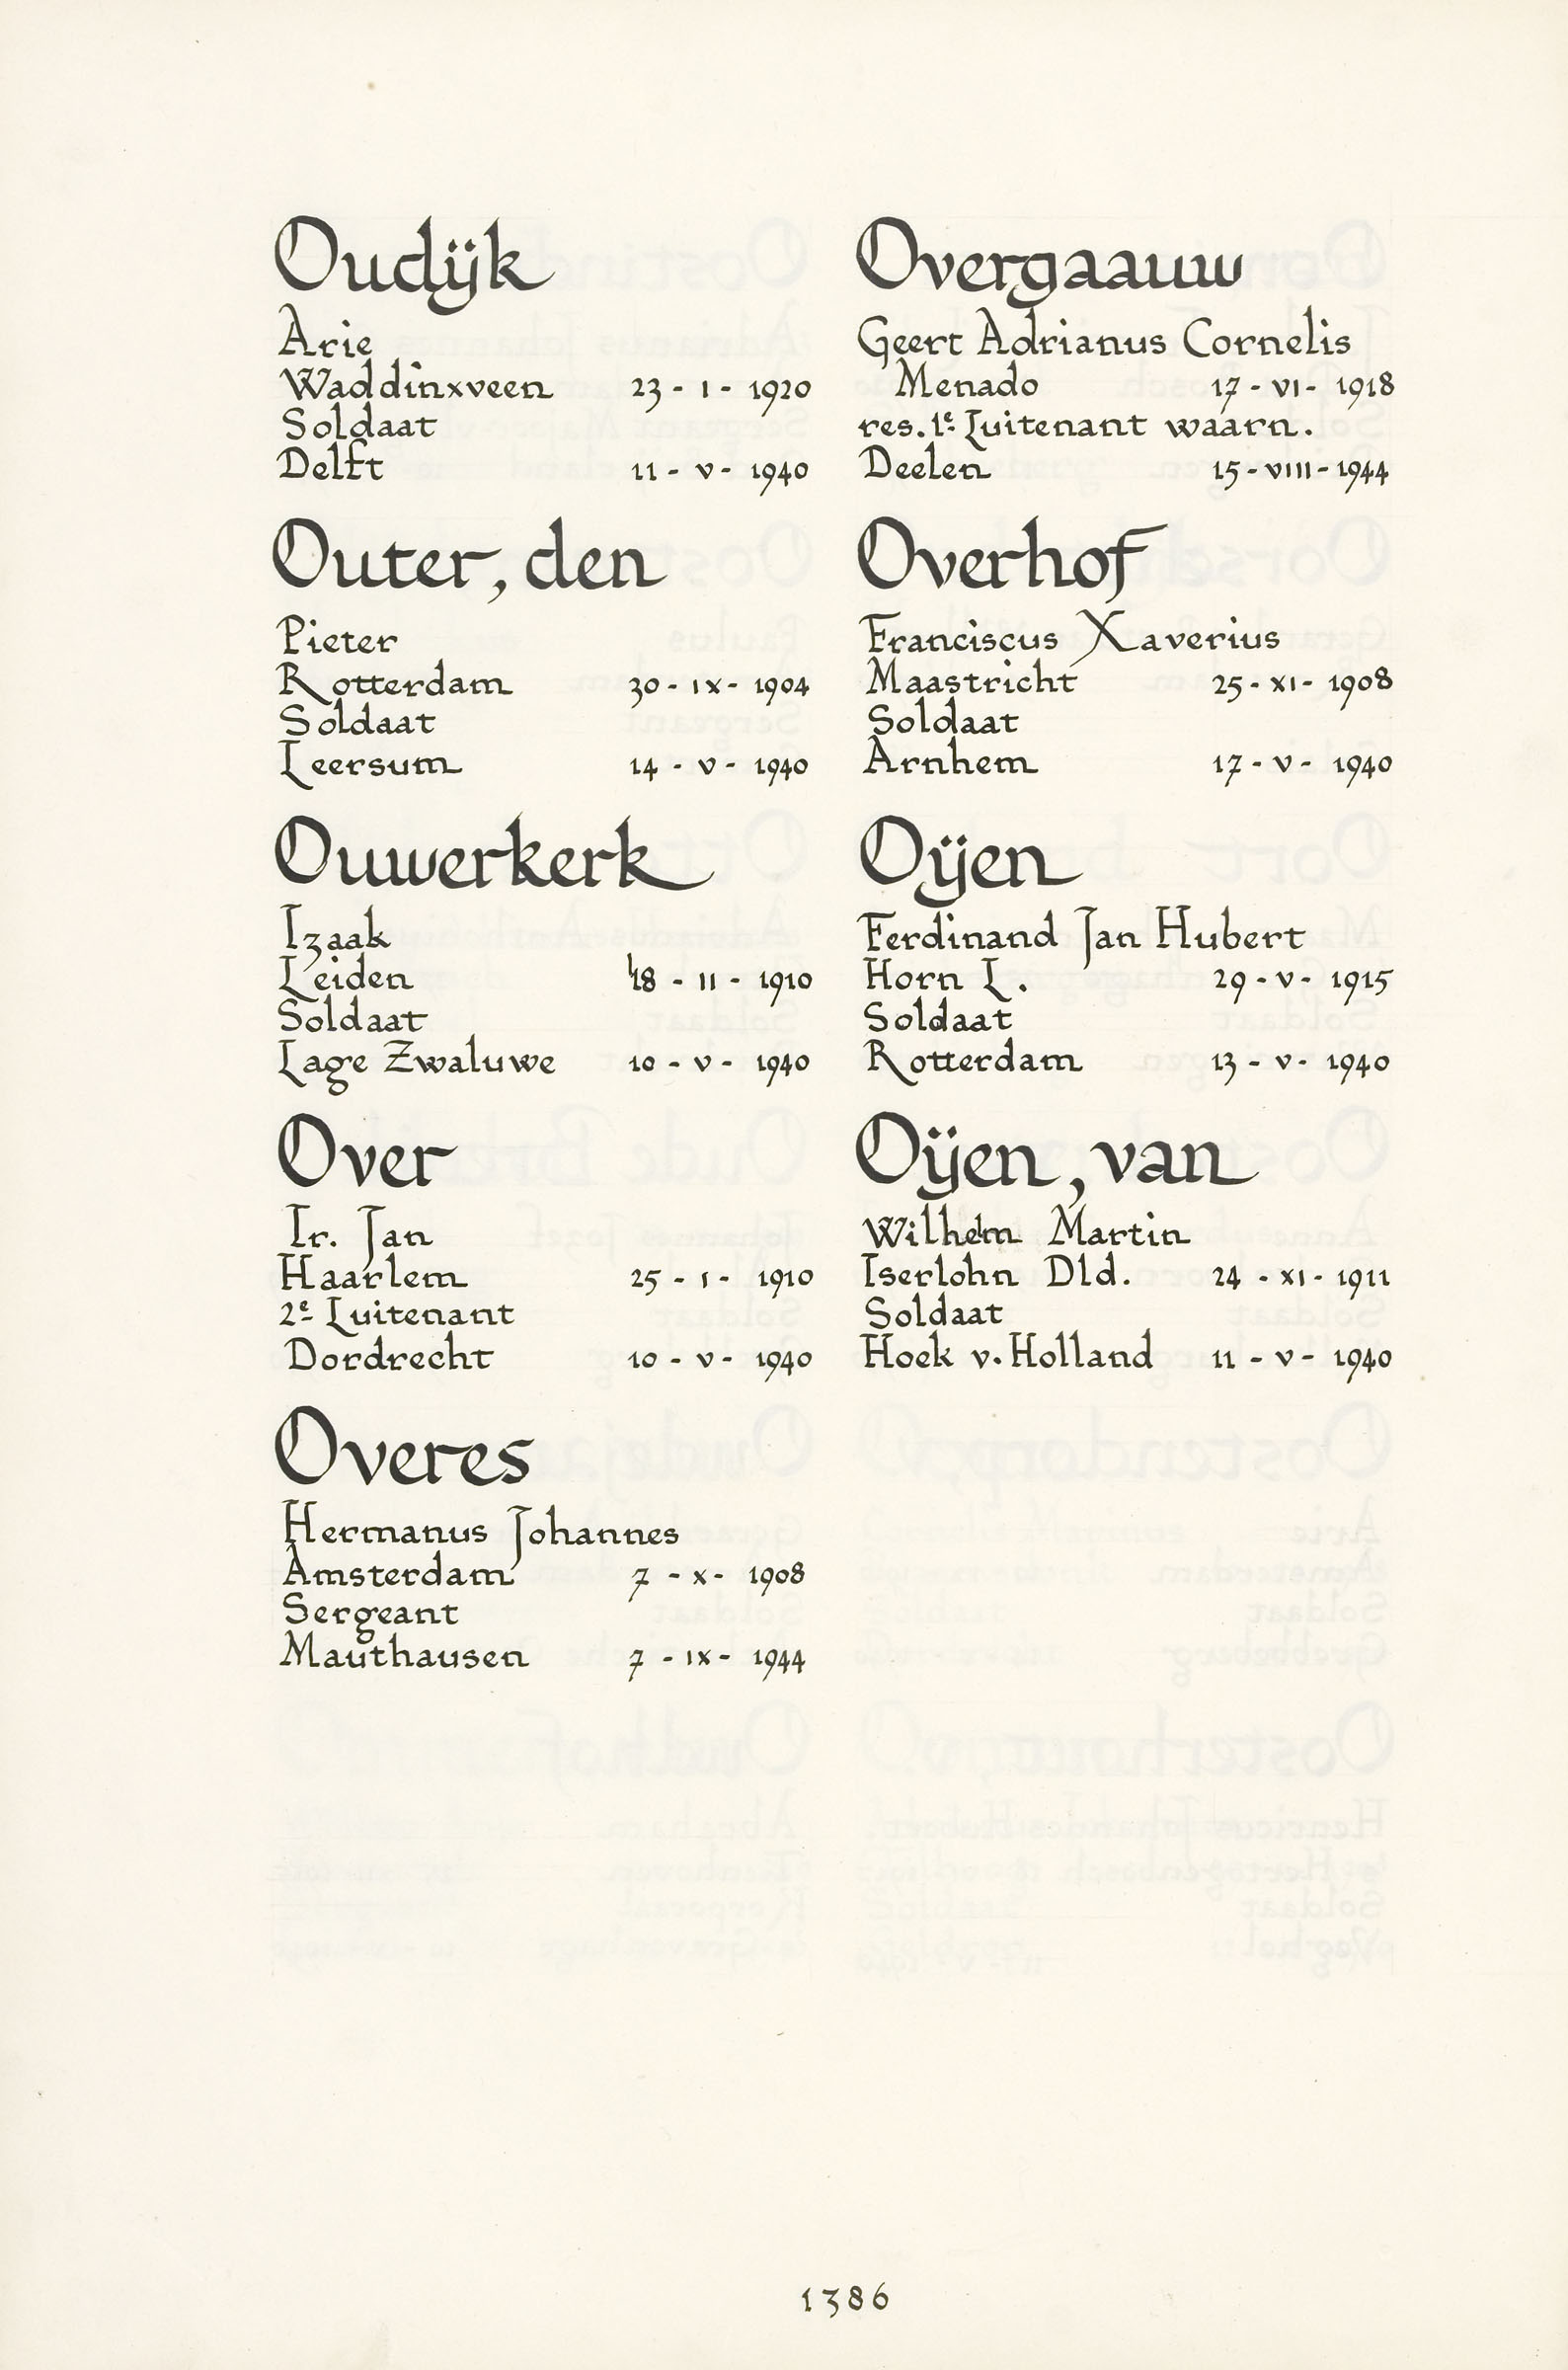 Oudijk
Arie
Waddinxveen 23 - I - 1920
Soldaat
Delft 11 - V - 1940
Outer, den
Pieter
Rotterdam 30 - IX - 1904
Soldaat
Leersum 14 - V - 1940
Ouwerkerk
Izaak
Leiden 18 - II - 1910
Soldaat
Lage Zwaluwe 10 - V - 1940
Over
Ir. Jan
Haarlem 25 - I - 1910
2e Luitenant
Dordrecht 10 - V - 1940
Overes
Hermanus Johannes
Amsterdam 7 - X - 1908
Sergeant
Mauthausen 7 - IX - 1944
Overgaauw
Geert Adrianus Cornelis
Menado 17 - VI - 1918
res. 1e Luitenant waarn.
Deelen 15 - VIII - 1944
Overhof
Franciscus Xaverius
Maastricht 25 - XI - 1908
Soldaat
Arnhem 17 - V - 1940
Oijen
Ferdinand Jan Hubert
Horn L. 29 - V - 1915
Soldaat
Rotterdam 13 - V - 1940
Oijen, van
Wilhelm Martin
Iserlohn Dld. 24 - XI - 1911
Soldaat
Hoek v. Holland 11 - V - 1940
1386